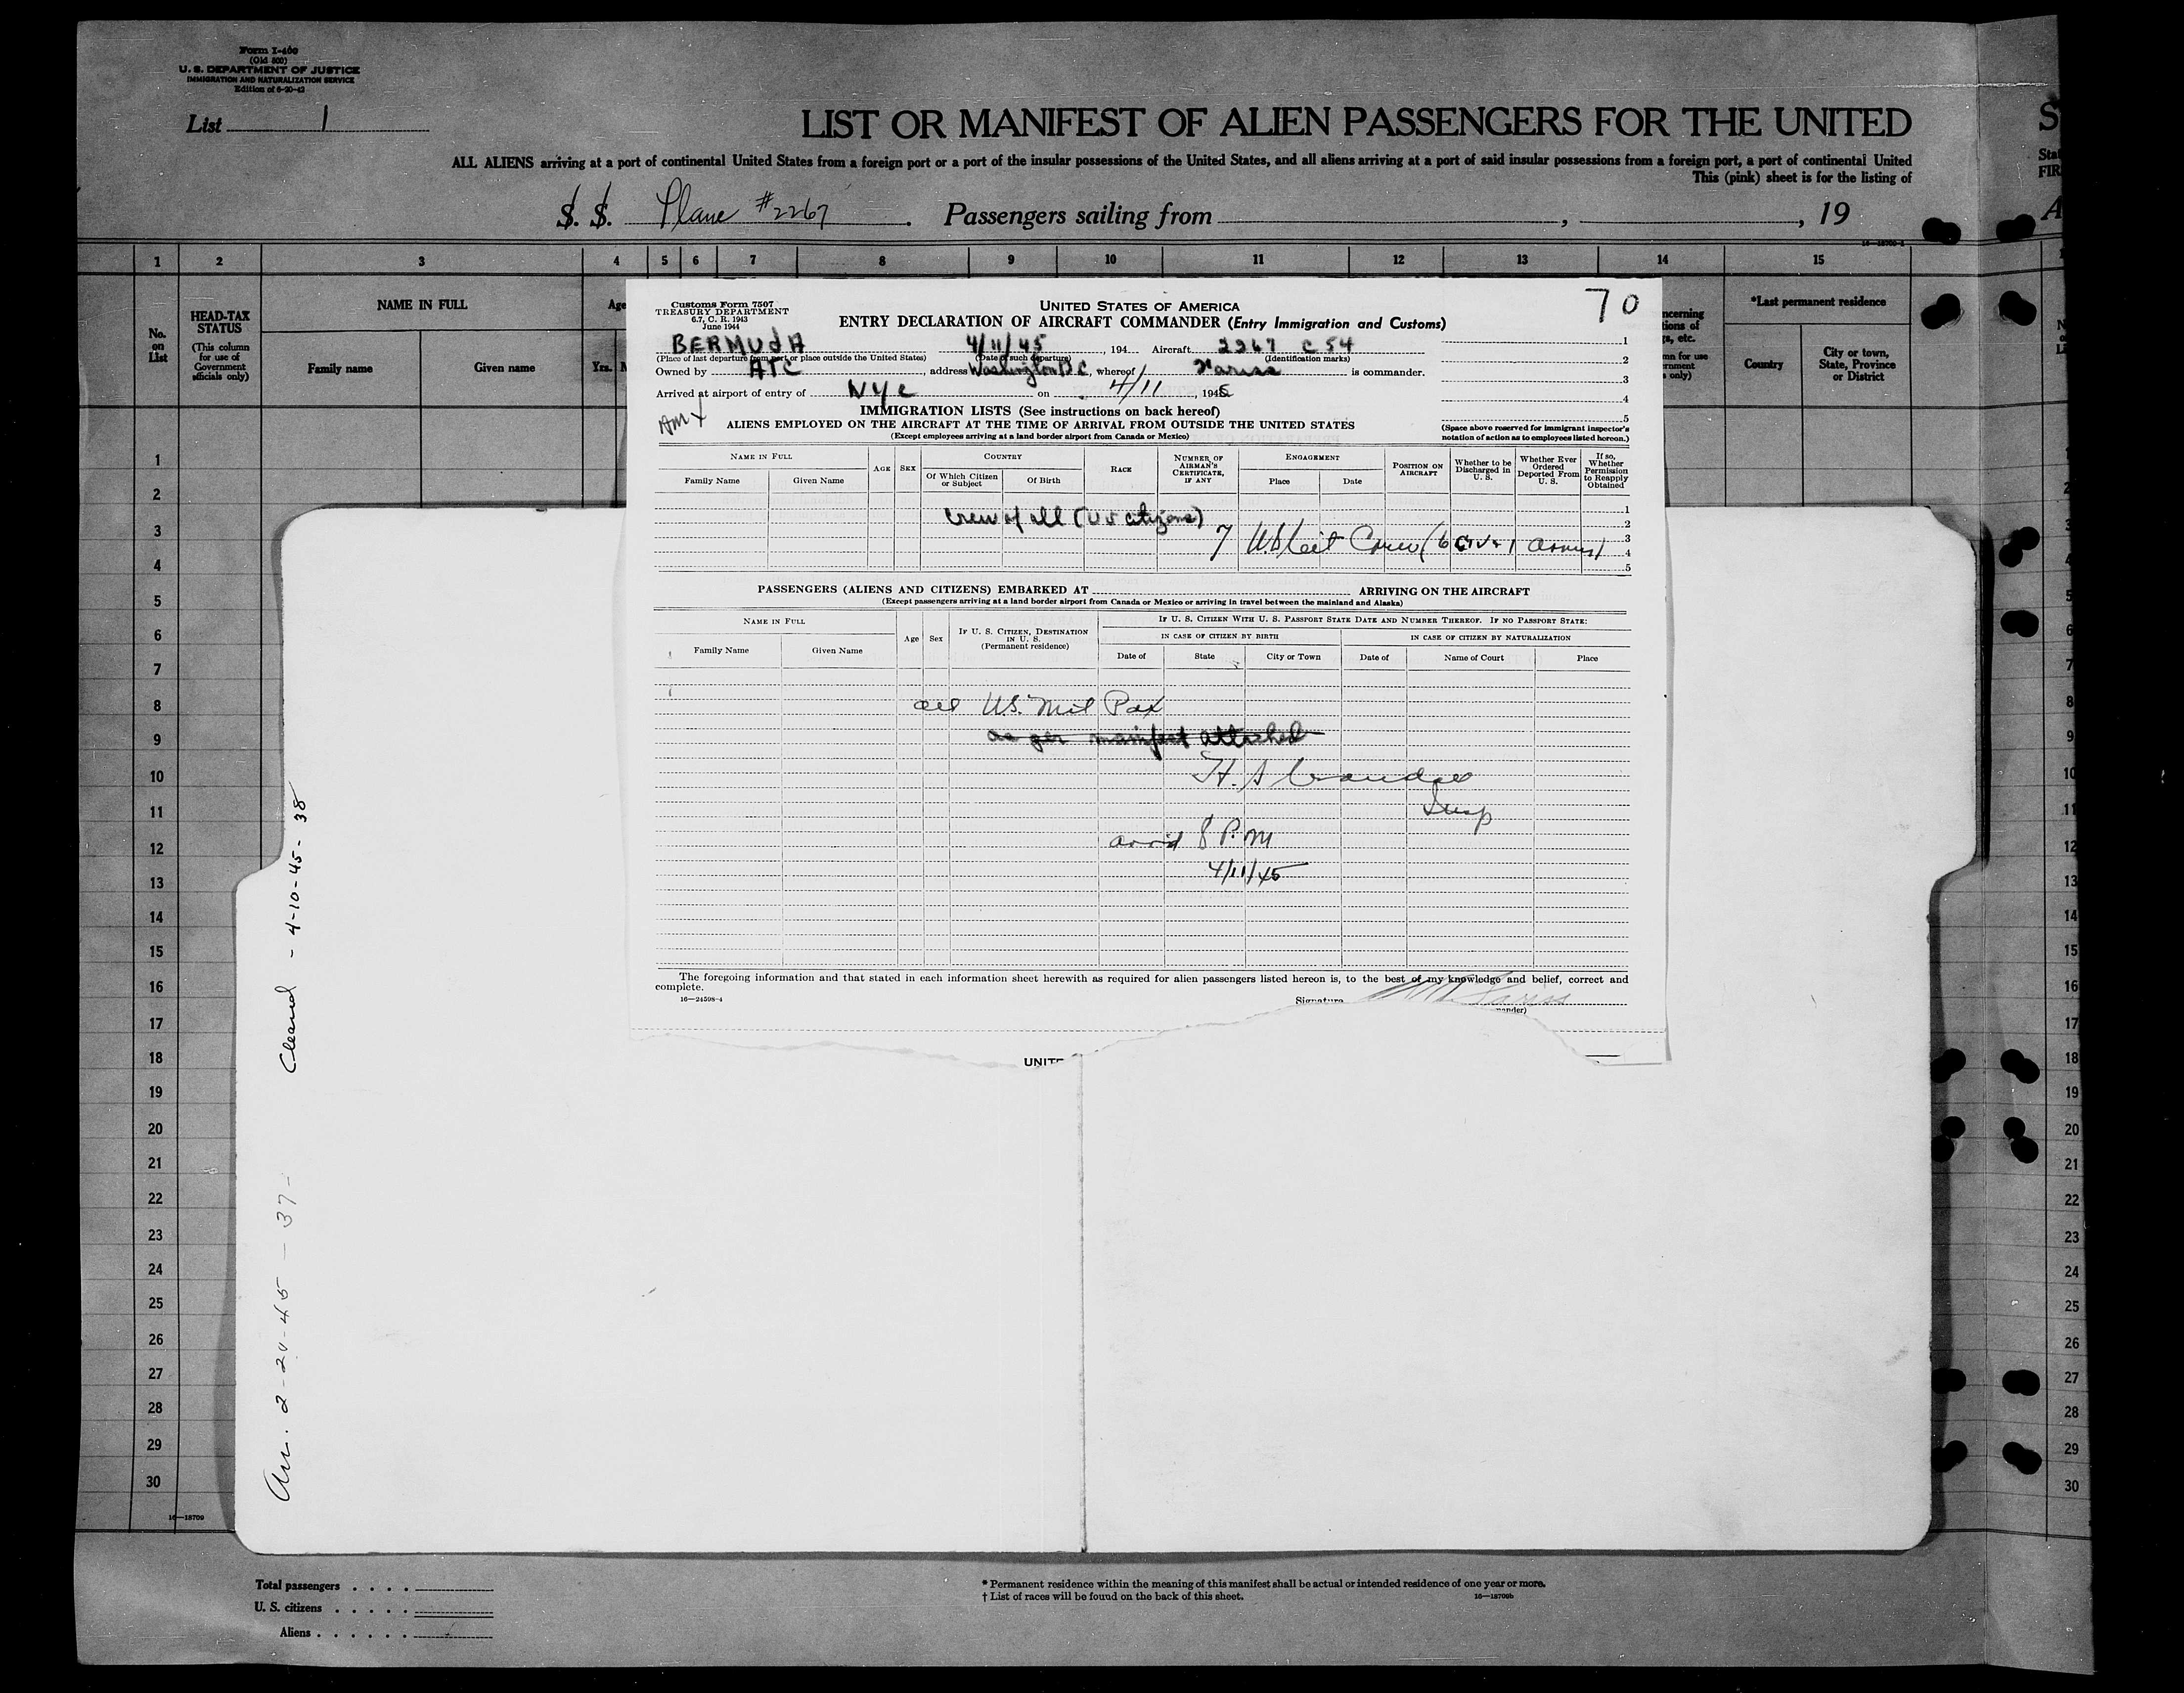 Form I-400
(Old 500)
U. S. DEPARTMENT OF JUSTICE
IMMIGRATION AND NATURALIZATION SERVICE
Edition of 6-20-42
List 1
LIST OR MANIFEST OF ALIEN PASSENGERS FOR THE UNITED
ALL ALIENS arriving at a port of continental United States from a foreign port or a port of the insular possessions of the United States, and all aliens arriving at a port of said insular possessions from a foreign port, a port of continental United
This (pink) sheet is for the listing of
S. S. Plane #2267. Passengers sailing from , , 19
S
Stat
FIR
A
1 2 3 4 5 6 7 8 9 10 11 12 13 14 15
No. on List
HEAD-TAX STATUS
(This column for use of Government officials only)
NAME IN FULL
Family name
Given name
Age
Yrs.
*Last permanent residence
Country
City or town, State, Province or District
70
Customs Form 7507
TREASURY DEPARTMENT
6.7, C. R. 1943
June 1944
UNITED STATES OF AMERICA
ENTRY DECLARATION OF AIRCRAFT COMMANDER (Entry Immigration and Customs)
BERMUdA 4/11/45, 194 Aircraft 2267 C 54
(Place of last departure from port or place outside the United States) (Date of such departure) (Identification marks)
Owned by ATC, address Washington DC, whereof is commander.
Arrived at airport of entry of NYC on 4/11, 1945
IMMIGRATION LISTS (See instructions on back hereof)
ALIENS EMPLOYED ON THE AIRCRAFT AT THE TIME OF ARRIVAL FROM OUTSIDE THE UNITED STATES
(Except employees arriving at a land border airport from Canada or Mexico)
1
2
3
4
5
(Space above reserved for immigrant inspector's notation of action as to employees listed hereon.)
NAME IN FULL
Family Name
Given Name
AGE
SEX
COUNTRY
Of Which Citizen or Subject
Of Birth
RACE
NUMBER OF AIRMAN'S CERTIFICATE, IF ANY
ENGAGEMENT
Place
Date
POSITION ON AIRCRAFT
Whether to be Discharged in U. S.
Whether Ever Ordered Deported From U. S.
If so, Whether Permission to Reapply Obtained
1
2
3
4
5
Crew of all (US citizens)
7 US Cit Crew (6 civ + 1
PASSENGERS (ALIENS AND CITIZENS) EMBARKED AT ARRIVING ON THE AIRCRAFT
(Except passengers arriving at a land border airport from Canada or Mexico or arriving in travel between the mainland and Alaska)
NAME IN FULL
Family Name
Given Name
Age
Sex
IF U. S. CITIZEN, DESTINATION IN U. S.
(Permanent residence)
IF U. S. CITIZEN WITH U. S. PASSPORT STATE DATE AND NUMBER THEREOF. IF NO PASSPORT STATE:
IN CASE OF CITIZEN BY BIRTH
IN CASE OF CITIZEN BY NATURALIZATION
Date of
State
City or Town
Date of
Name of Court
Place
all U.S. Mil Pax
as per manifest attached
H. S
Insp
arrid 8 P.M
4/11/45
The foregoing information and that stated in each information sheet herewith as required for alien passengers listed hereon is, to the best of my knowledge and belief, correct and
complete.
16—24598-4
Signature
mander)
UNITE
Cleared - 4-10-45- 38
Arr. 2-20-45 - 37-
1
2
3
4
5
6
7
8
9
10
11
12
13
14
15
16
17
18
19
20
21
22
23
24
25
26
27
28
29
30
16—18709
Total passengers
U. S. citizens
Aliens
* Permanent residence within the meaning of this manifest shall be actual or intended residence of one year or more.
† List of races will be found on the back of this sheet.
16—18709b